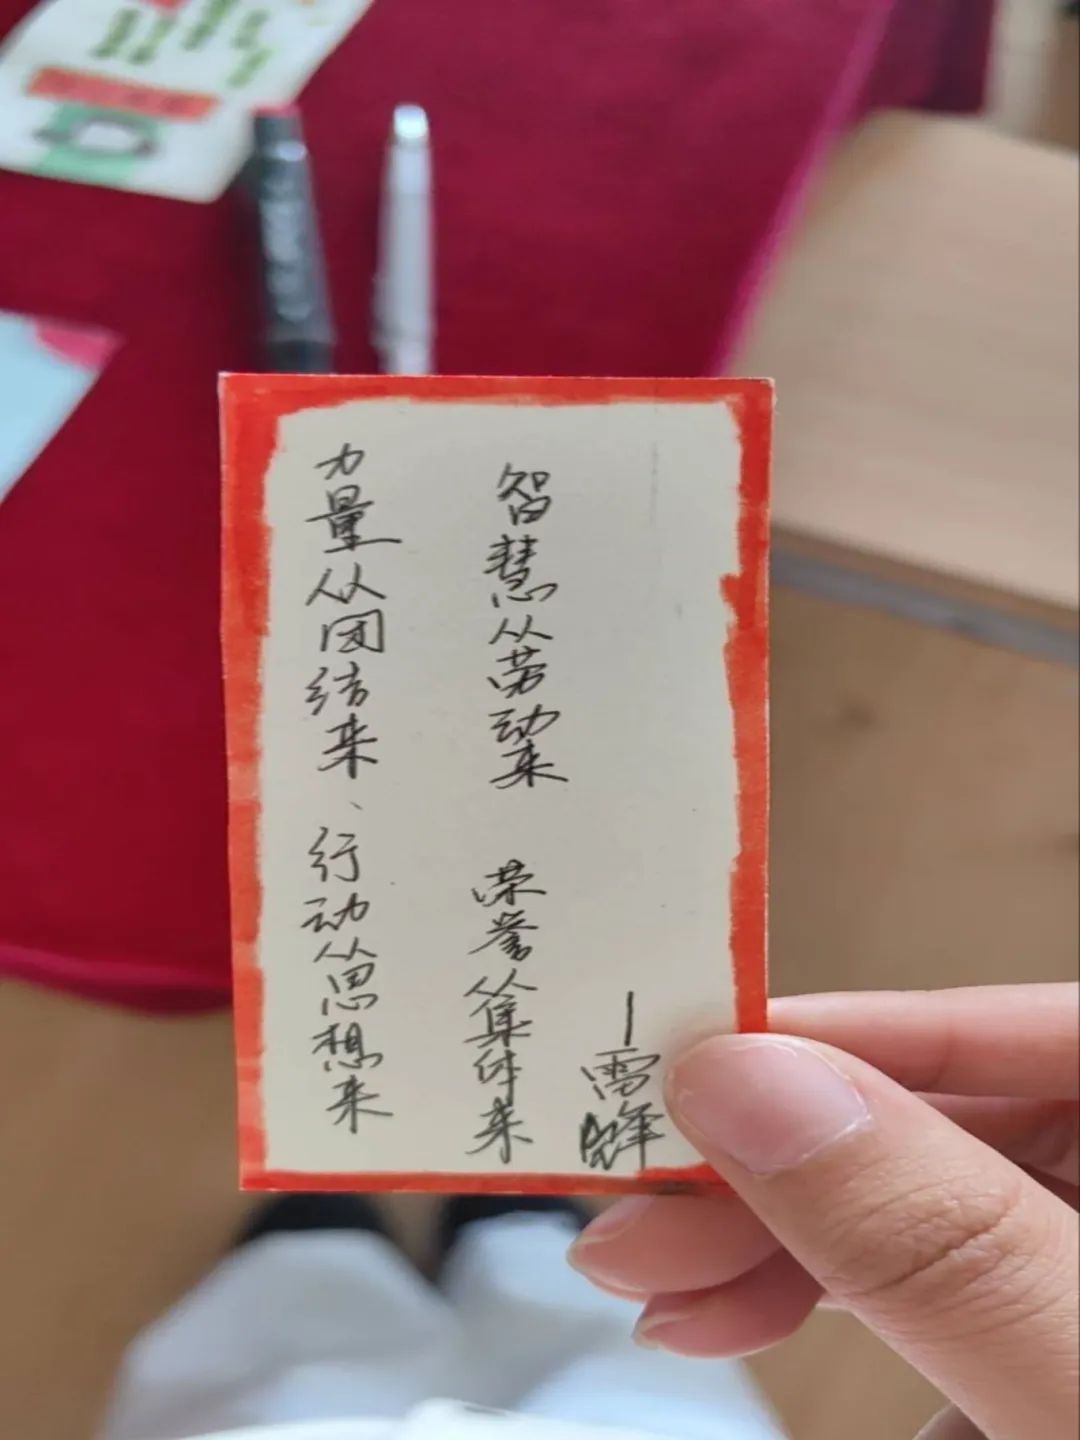 力量从团结来、行动从思想来
智慧从劳动来 荣誉从集体来
—雷锋